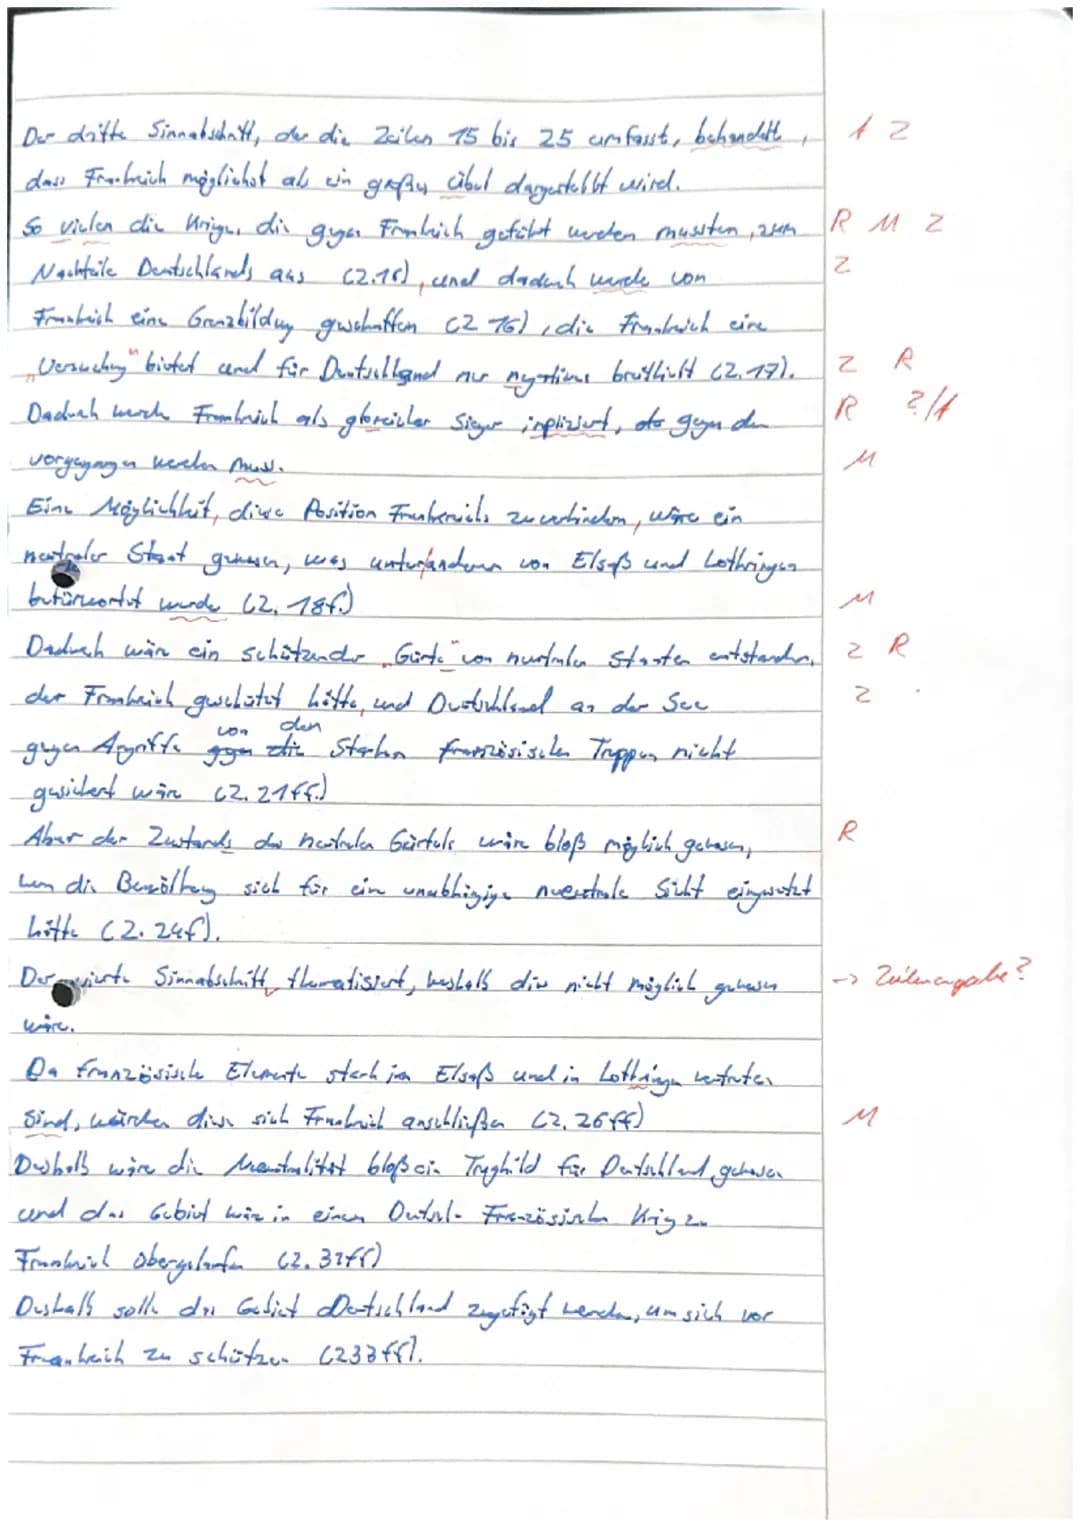 Der dritte Sinnabschnitt, der die Zeilen 15 bis 25 umfasst, behandelt, 1 Z
dass Frankreich möglichst als ein großes Übel dargestellt wird.
So vielen die Kriege, die gegen Frankreich geführt werden mussten, zum R M Z
Nachteile Deutschlands aus (Z.15), und dadurch wurde von Z
Frankreich eine Grenzbildung geschaffen (Z 16), die Frankreich eine
„Versuchung" bietet und für Deutschland nur negatives (Z.17). Z R
Dadurch Frankreich als glorreicher Sieger inpliziert, gegen den R ?/1
vorgegangen werden muss. M
Eine Möglichkeit, diese Position Frankreichs zu verhindern, wäre ein
neutraler Staat gewesen, was unter anderem von Elsaß und Lothringen
befürwortet wurde (Z. 18f.) M
Dadurch wäre ein schützender „Gürtel" von neutralen Staaten entstanden, Z R
der Frankreich geschützt hätte, und Deutschland an der See Z
gegen Angriffe von den Starken französischen Truppen nicht
gesichert wäre (Z. 21ff.)
Aber der Zustands des neutralen Gürtels wäre bloß möglich gewesen, R
die Bevölkerung sich für ein unabhängige neutrale Sicht eingesetzt
hätte (Z. 24f).
Der vierte Sinnabschnitt thematisiert, weshalb dies nicht möglich gewesen -> Zeilenangabe?
wäre.
Da französische Elemente stark im Elsaß und in Lothringen vertreten
Sind, würden diese sich Frankreich anschließen (Z. 26ff) M
Deshalb wäre die Neutralität bloß ein Trugbild für Deutschland gewesen
und das Gebiet wäre in einem Deutsch-Französischen Krieg zu
Frankreich übergelaufen (Z. 32ff)
Deshalb solle das Gebiet Deutschland zugefügt werden, um sich vor
Frankreich zu schützen (Z33ff).